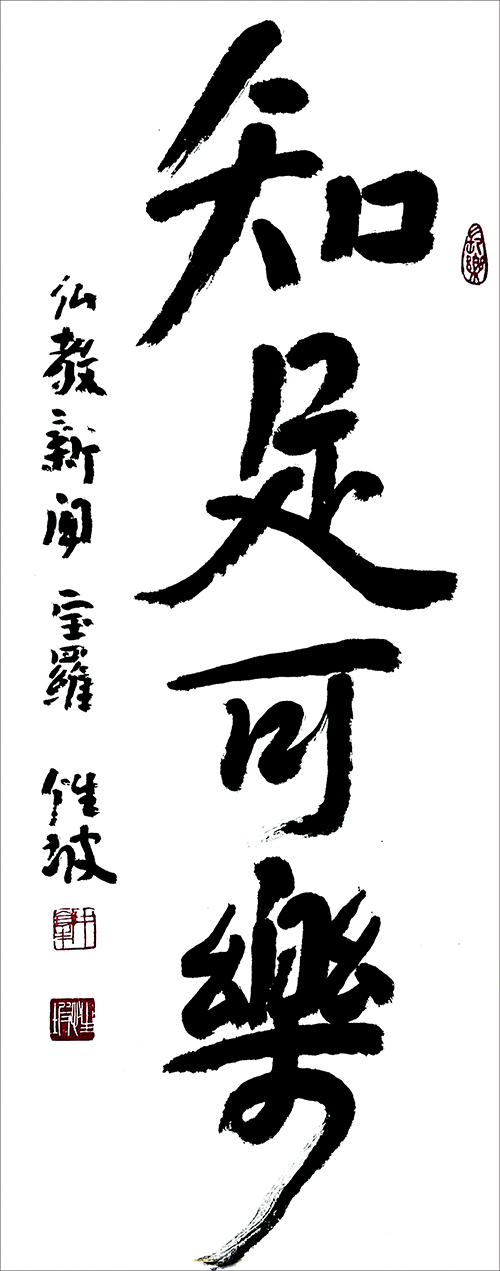 知足可樂
仏教新聞 宝羅 性坡